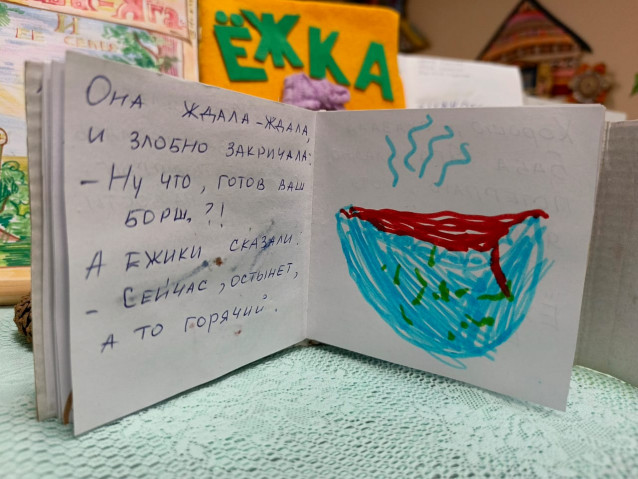 ЁЖКА
Она ждала-ждала,
и злобно закричала:
- Ну что, готов ваш
борщ, ?!
А Ёжики сказали:
- Сейчас, остынет,
а то горячий.